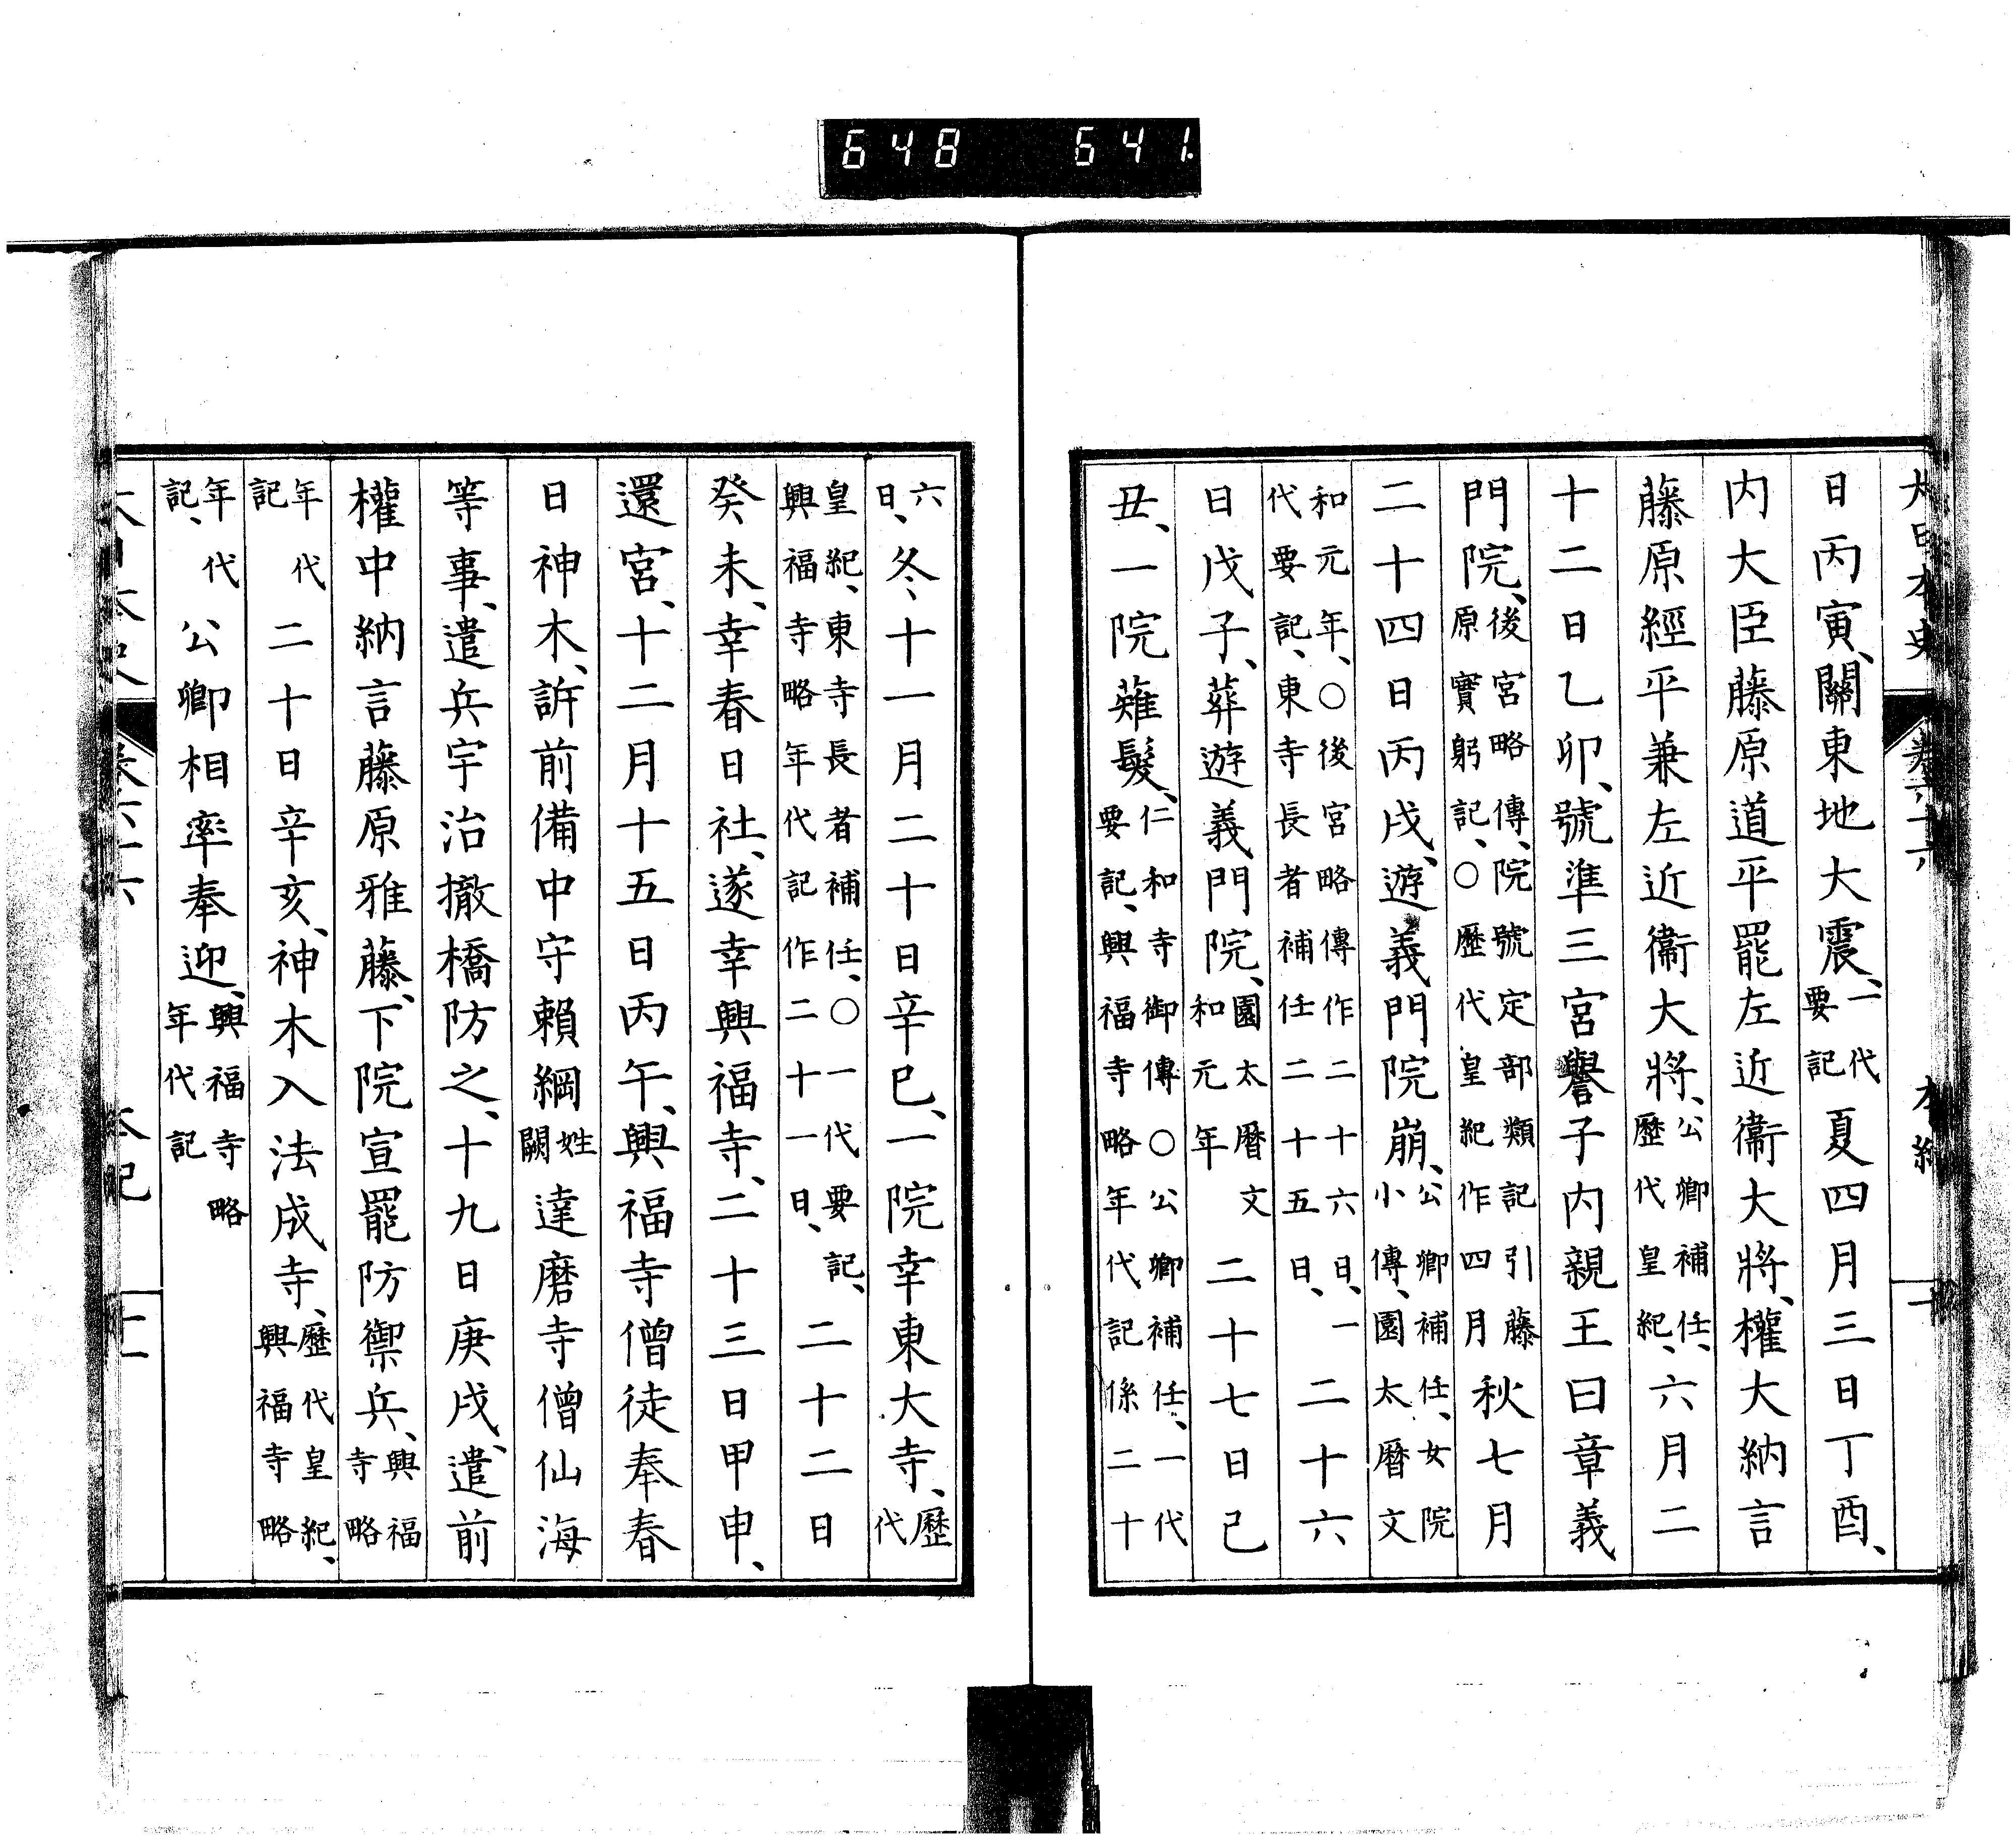 648 641
大日本史 卷六十六 本紀 十
日丙寅、關東地大震、一代要記夏四月三日丁酉、
内大臣藤原道平罷左近衞大將、權大納言
藤原經平兼左近衞大將、公卿補任、歷代皇紀、六月二
十二日乙卯、號準三宮譽子内親王曰章義
門院、後宮略傳、院號定部類記引藤原實躬記、○歷代皇紀作四月秋七月
二十四日丙戌、遊義門院崩、公卿補任、女院小傳、園太曆文
和元年、○後宮略傳作二十六日、一代要記、東寺長者補任二十五日、二十六
日戊子、葬遊義門院、園太曆文和元年二十七日己
丑、一院薙髮、仁和寺御傳○公卿補任、一代要記、興福寺略年代記係二十
六日、冬、十一月二十日辛巳、一院幸東大寺、歷代
皇紀、東寺長者補任、○一代要記、興福寺略年代記作二十一日、二十二日
癸未、幸春日社、遂幸興福寺、二十三日甲申、
還宮、十二月十五日丙午、興福寺僧徒奉春
日神木、訴前備中守賴綱姓闕達磨寺僧仙海
等事、遣兵宇治撤橋防之、十九日庚戌、遣前
權中納言藤原雅藤、下院宣罷防禦兵、興福寺略
年代記二十日辛亥、神木入法成寺、歷代皇紀、興福寺略
年代記、公卿相率奉迎、興福寺略年代記
大日本史 卷六十六 本紀 十一